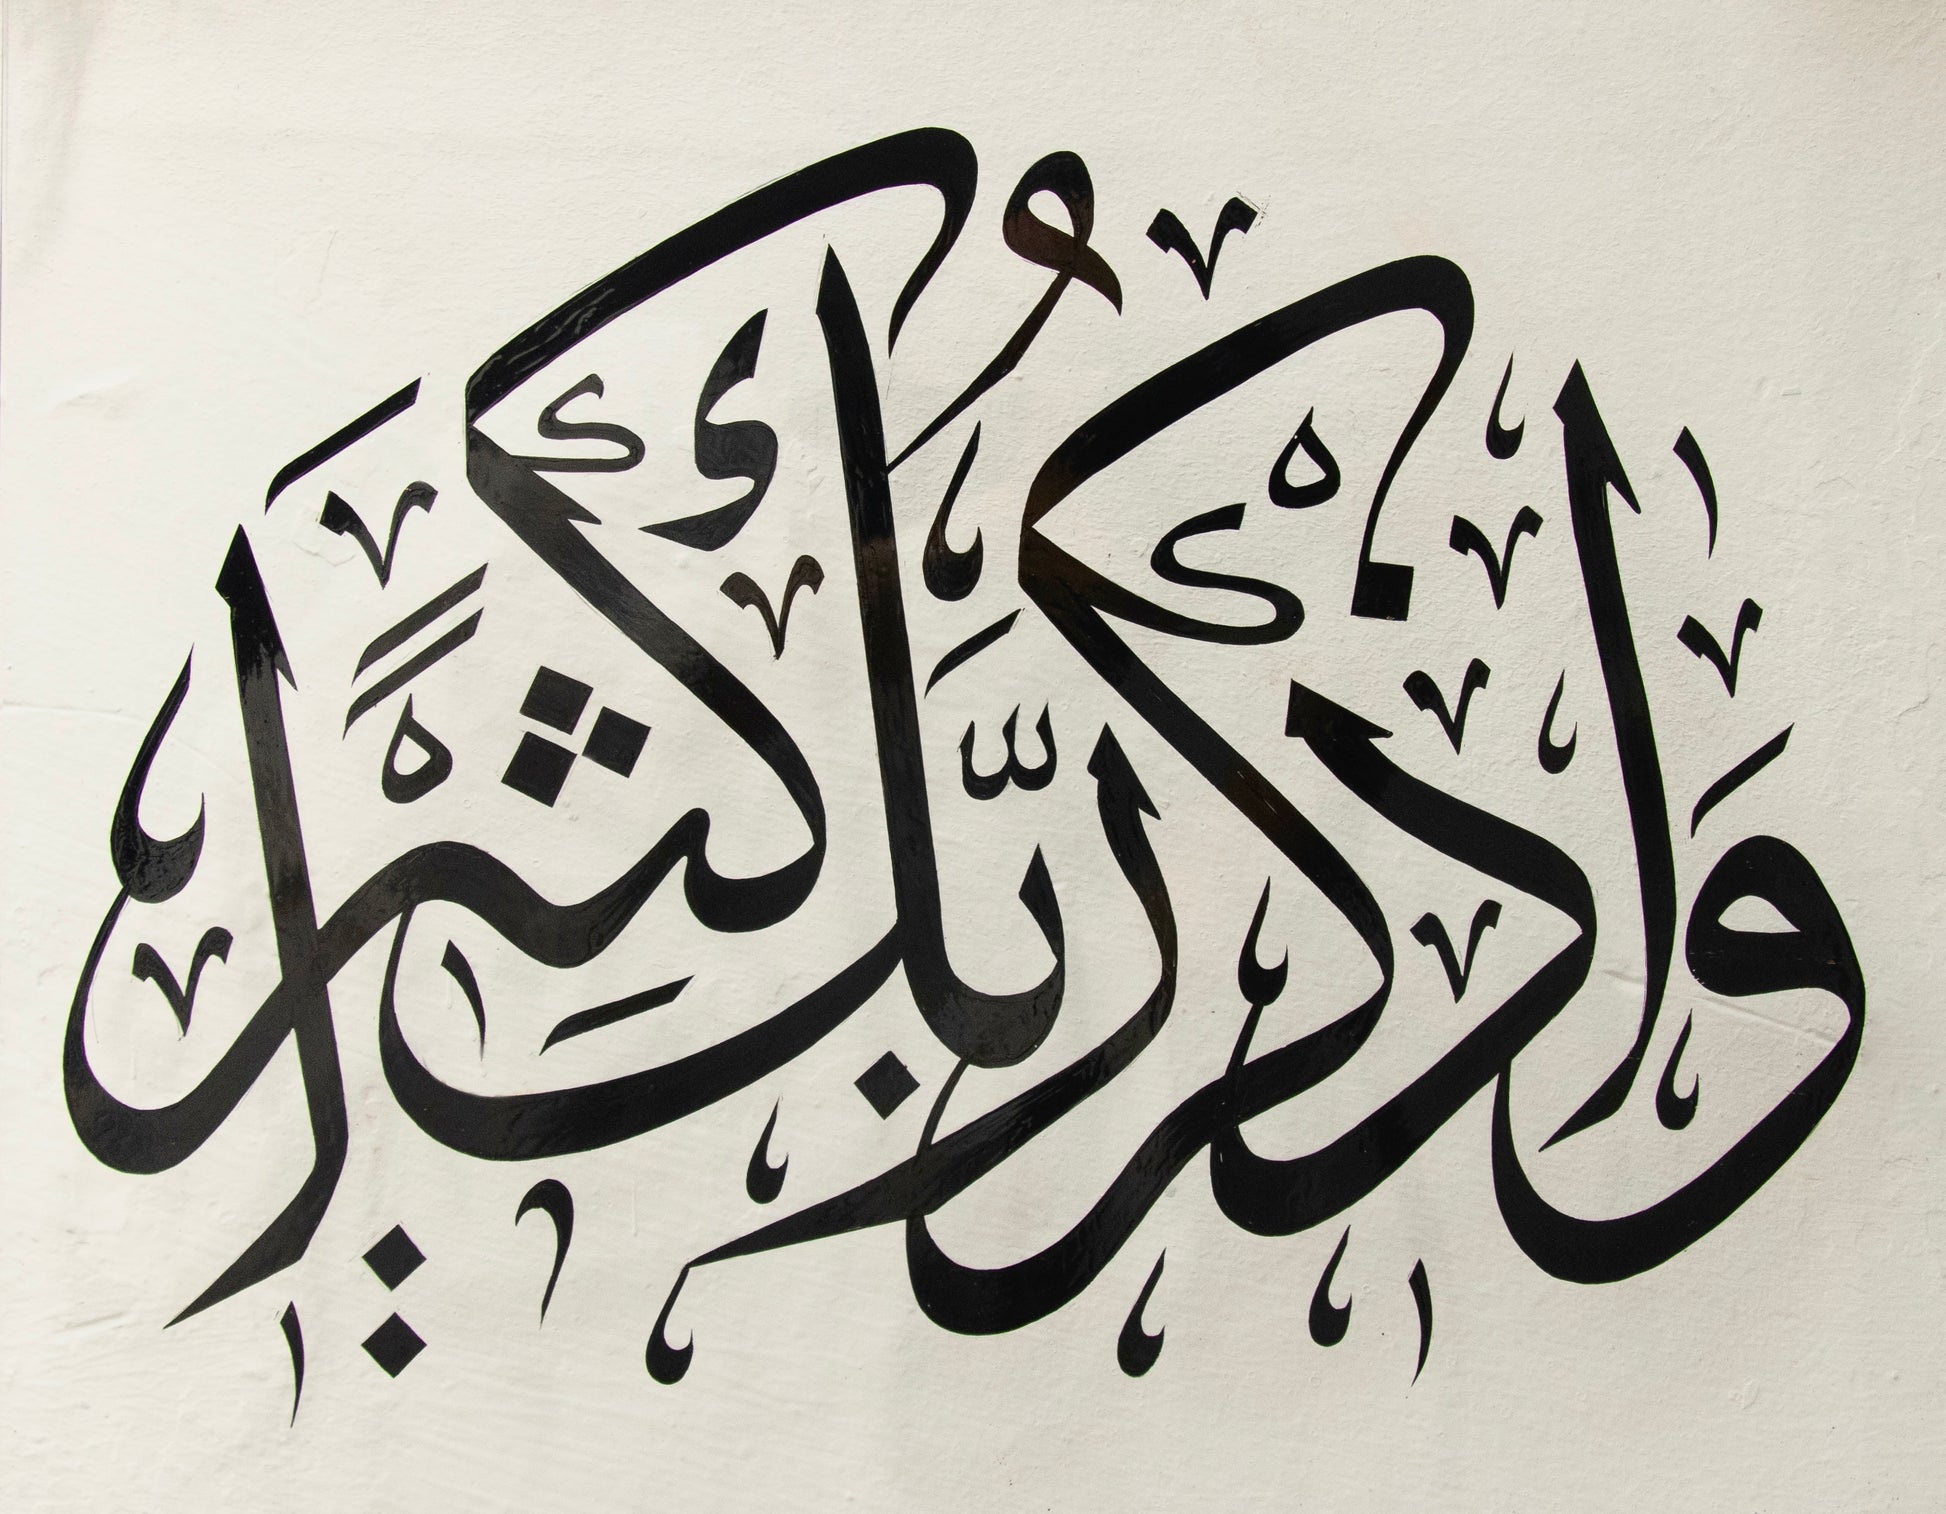 وَاذْكُر رَّبَّكَ كَثِيرًا